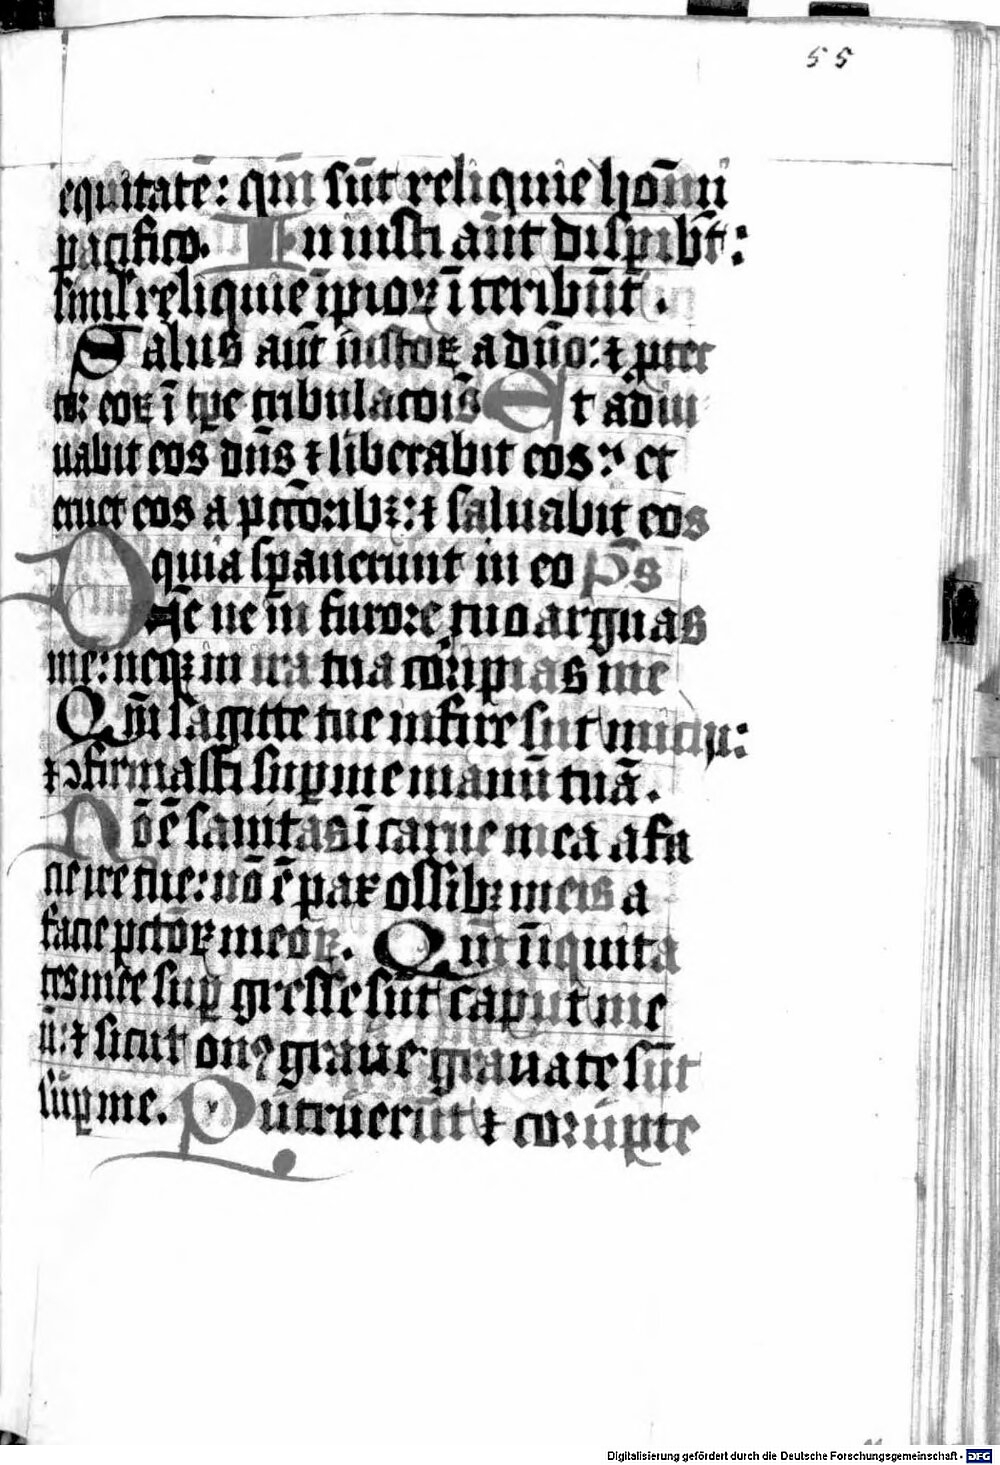 55
equitatē: qm̄ sūt reliquie hōmi
pacifico. Iniusti aūt disꝑibūt:
simłˀ reliquie īpioꝝ īteribūt.
Salus aūt iustoꝝ a dño: ⁊ ꝓtec
tor eoꝝ ī tꝑe tribulacōis Et adiu
uabit eos dn̄s ⁊ liberabit eos: et
eruet eos a pctōribꝫ: ⁊ saluabit eos
quia sꝑauerunt in eo p̄s
Dn̄e ne in furore tuo arguas
me: neqꝫ in ira tua corripias me
Qm̄ sagitte tue infixe sūt michi:
⁊ ↄfirmasti suꝑ me manū tuā.
Nō ē sanitas ī carne mea a fa
cie ire tue: nō ē pax ossibꝫ meis a
facie pctōꝝ meoꝝ. Qm̄ iniquita
tes mee suꝑ gresse sūt caput me
ū: ⁊ sicut onꝰ graue grauate sūt
suꝑ me. Putruerūt ⁊ corrupte
Digitalisierung gefördert durch die Deutsche Forschungsgemeinschaft - DFG